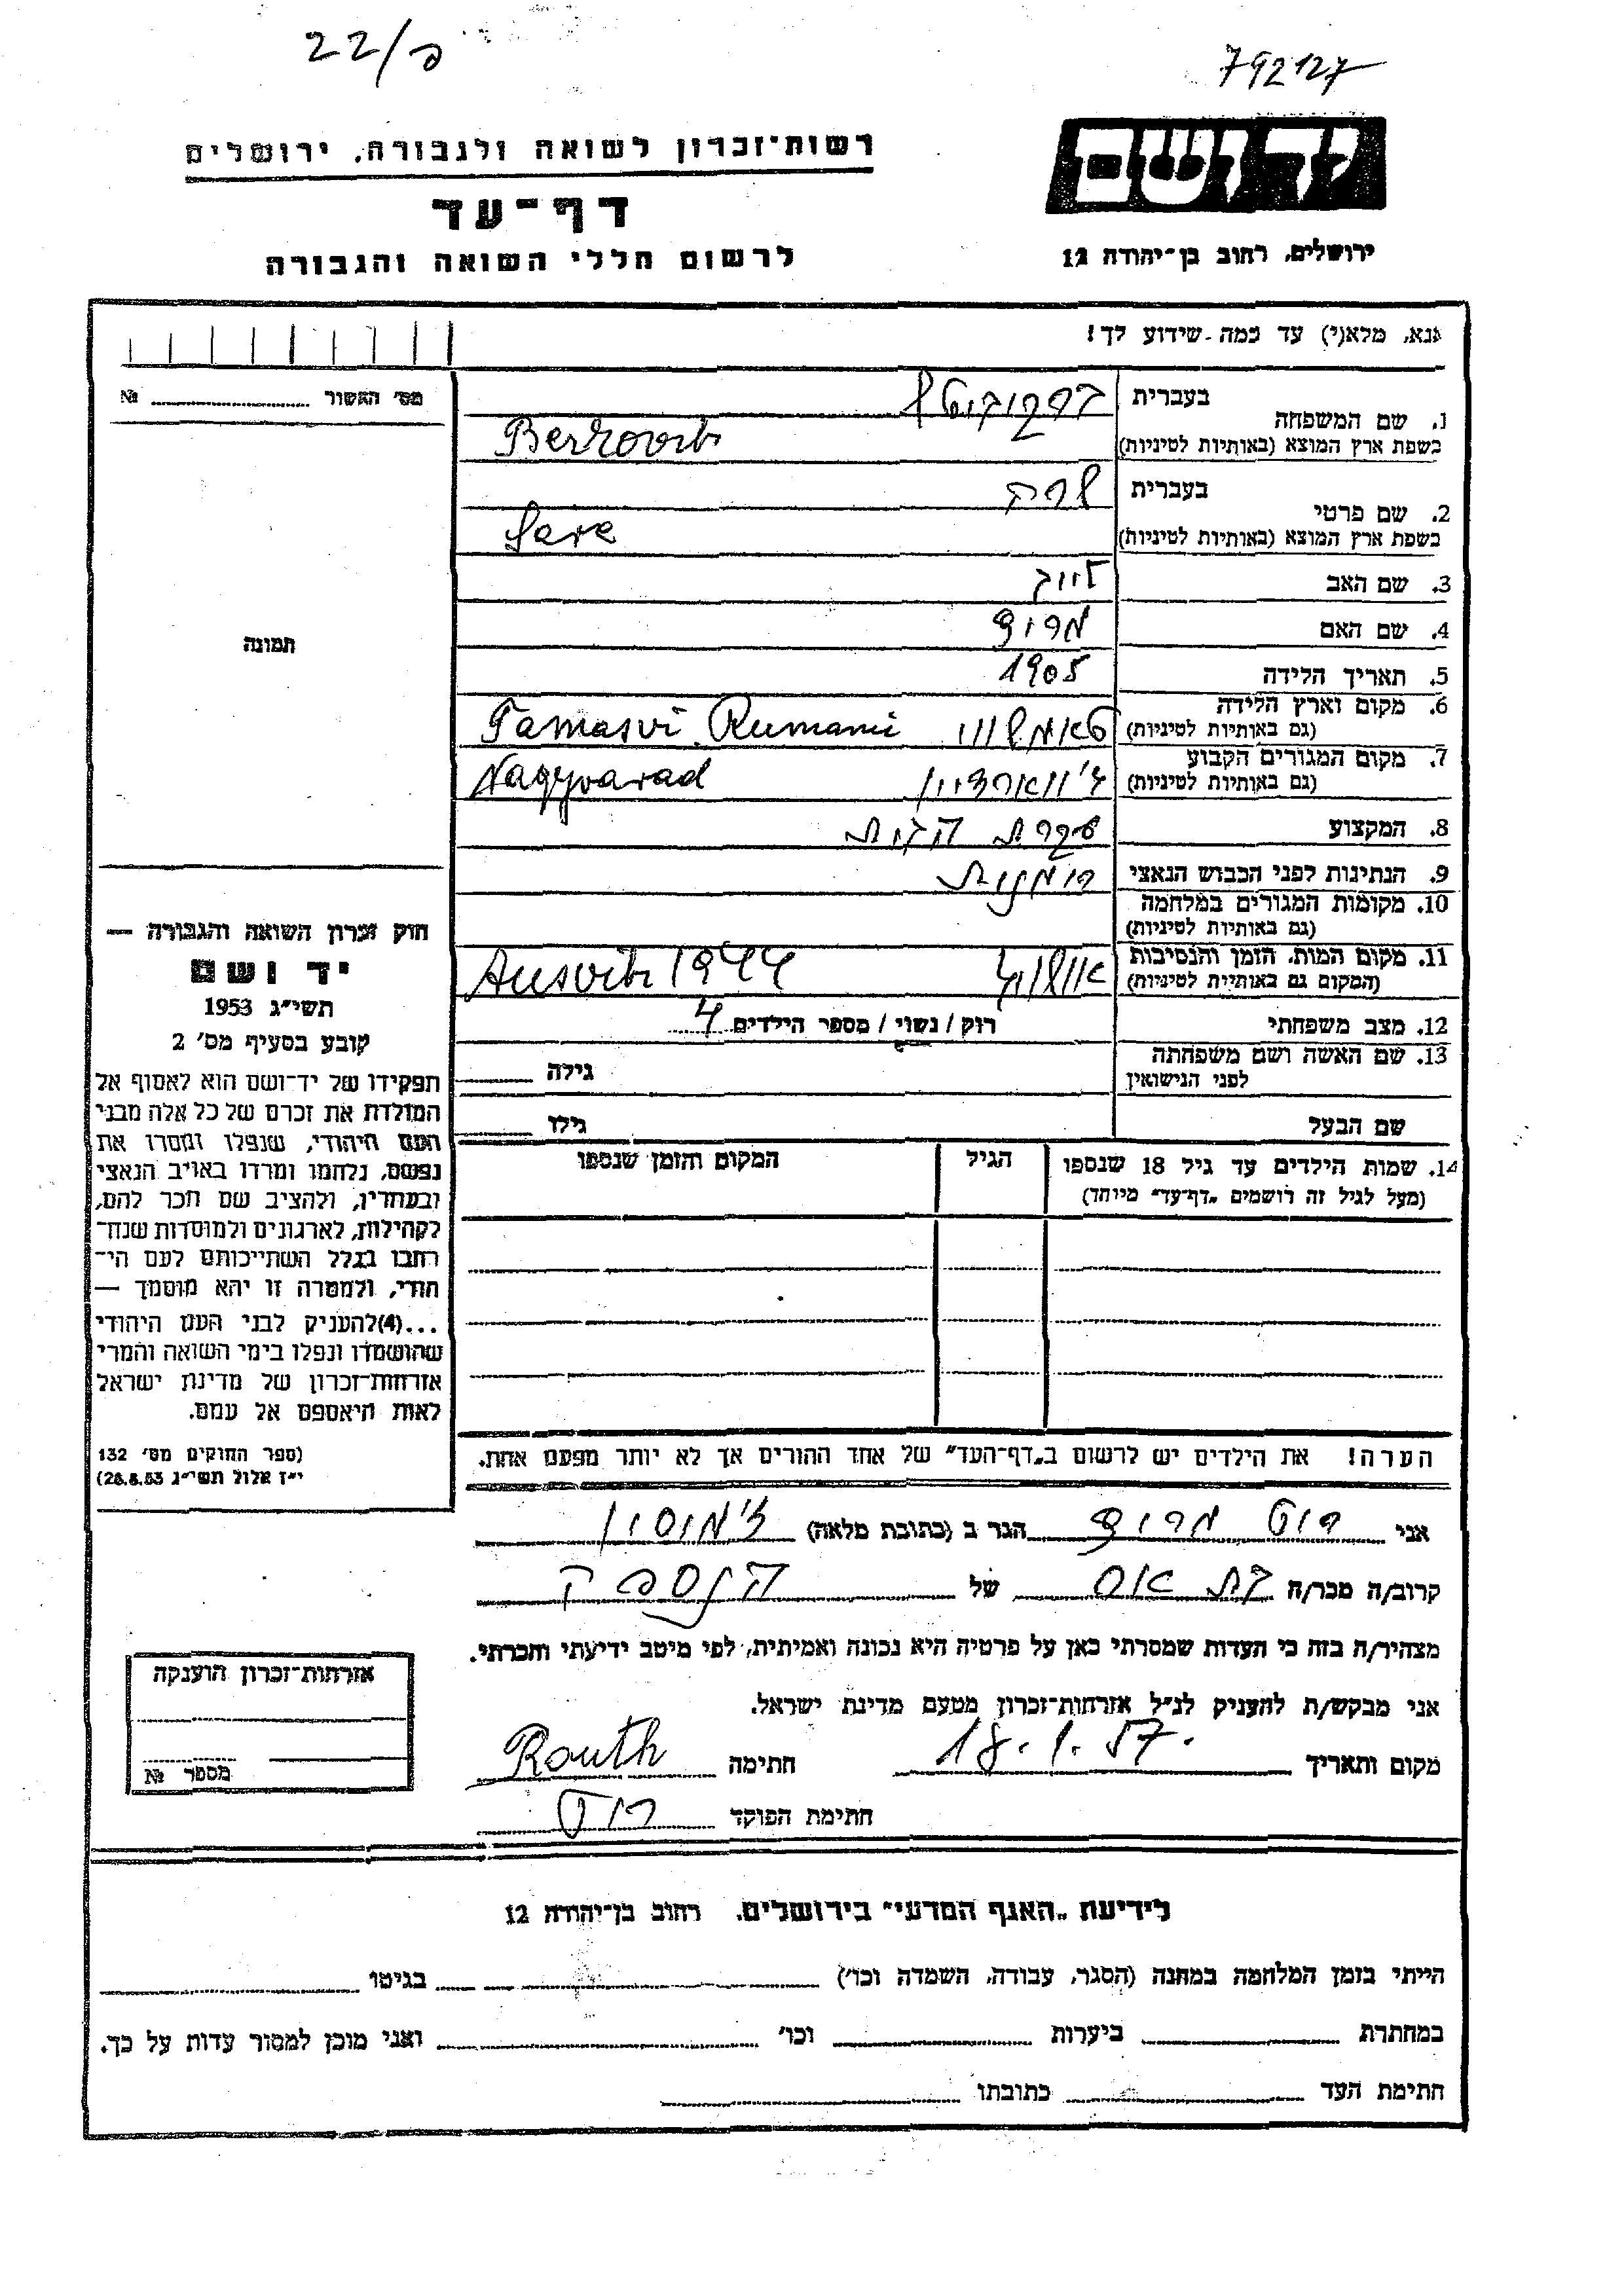 22/פ
792127
רשות־זכרון לשואה ולגבורה, ירושלים
יד ושם
דף־עד
לרשום חללי השואה והגבורה
ירושלים, רחוב בן־יהודה 12
נא, מלא(י) עד כמה שידוע לך!
מס׳ האשור №
1. שם המשפחה
בעברית ברקוביטש
בשפת ארץ המוצא (באותיות לטיניות) Berkovits
2. שם פרטי
בעברית שרה
בשפת ארץ המוצא (באותיות לטיניות) Sare
3. שם האב
4. שם האם
5. תאריך הלידה 1905
6. מקום וארץ הלידה
(גם באותיות לטיניות) Tamasvi Rumani
7. מקום המגורים הקבוע
(גם באותיות לטיניות) Nagyvarad
8. המקצוע עקרת הבית
9. הנתינות לפני הכבוש הנאצי רומנית
10. מקומות המגורים במלחמה
(גם באותיות לטיניות)
11. מקום המות, הזמן והנסיבות
(המקום גם באותיות לטיניות) Ausvits 1944
12. מצב משפחתי רווק / נשוי / מספר הילדים 4
13. שם האשה ושם משפחתה
לפני הנישואין גילה
שם הבעל גילו
14. שמות הילדים עד גיל 18 שנספו
(מעל לגיל זה רושמים „דף־עד״ מיוחד)
הגיל
המקום והזמן שנספו
הערה! את הילדים יש לרשום ב„דף־העד״ של אחד ההורים אך לא יותר מפעם אחת.
תמונה
חוק זכרון השואה והגבורה —
יד ושם
תשי״ג 1953
קובע בסעיף מס׳ 2
תפקידו של יד־ושם הוא לאסוף אל
המולדת את זכרם של כל אלה מבני
העם היהודי, שנפלו ומסרו את
נפשם, נלחמו ומרדו באויב הנאצי
ובעוזריו, ולהציב שם וזכר להם,
לקהילות, לארגונים ולמוסדות שנח־
רבו בגלל השתייכותם לעם הי־
הודי, ולמטרה זו יהא מוסמך —
...(4)להעניק לבני העם היהודי
שהושמדו ונפלו בימי השואה והמרי
אזרחות־זכרון של מדינת ישראל
לאות היאספם אל עמם.
(ספר החוקים מס׳ 132
י״ז אלול תשי״ג 28.8.53)
אני רוט הגר ב (כתובת מלאה)
קרוב/ה מכר/ה של
מצהיר/ה בזה כי העדות שמסרתי כאן על פרטיה היא נכונה ואמיתית, לפי מיטב ידיעתי והכרתי.
אני מבקש/ת להעניק לנ״ל אזרחות־זכרון מטעם מדינת ישראל.
מקום ותאריך 18.1.57. חתימה Routh
חתימת הפוקד רוט
אזרחות־זכרון הוענקה
מספר №
לידיעת „האגף המדעי״ בירושלים, רחוב בן־יהודה 12
הייתי בזמן המלחמה במחנה (הסגר, עבודה, השמדה וכו׳) בגיטו
במחתרת ביערות וכו׳ ואני מוכן למסור עדות על כך.
חתימת העד כתובתו